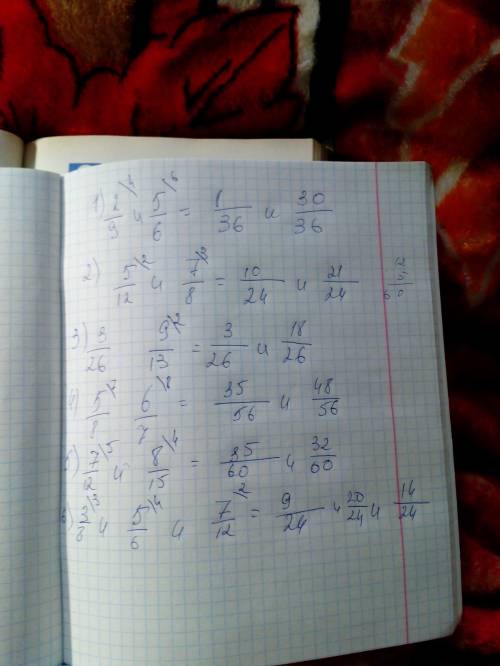 1) 2/9 \4 и 5/6 \6 = 1/36 и 30/36
2) 5/12 \2 и 7/8 \3 = 10/24 и 21/24
3) 3/26 9/13 \2 = 3/26 и 18/26
4) 5/8 \7 6/7 \8 = 35/56 и 48/56
5) 7/2 \5 и 8/15 \4 = 35/60 и 32/60
6) 3/8 \3 и 5/6 \4 и 7/12 \2 = 9/24 и 20/24 и 14/24